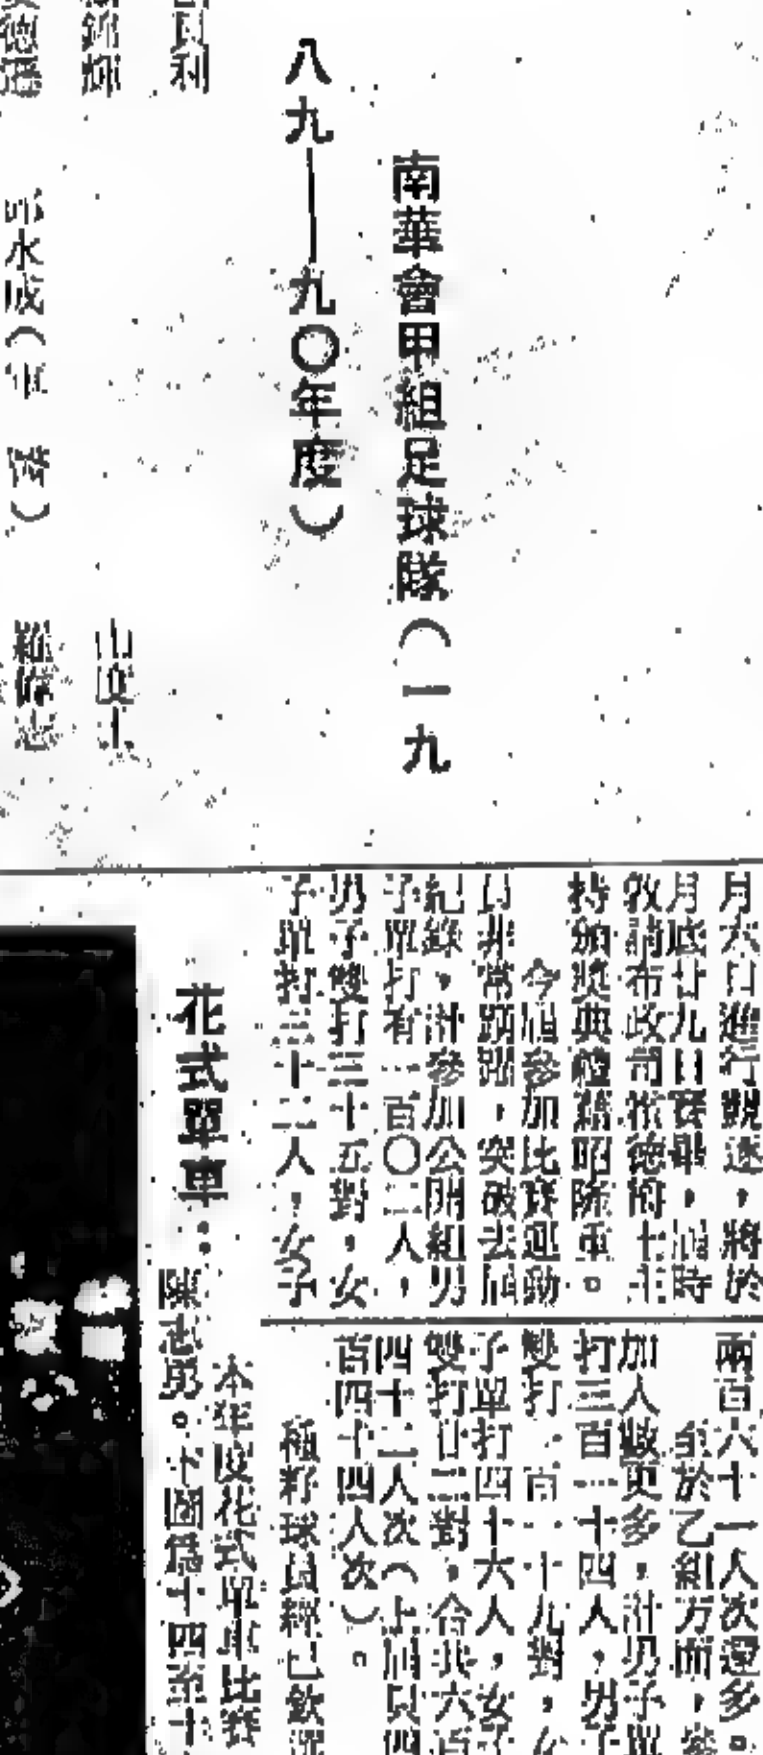 南華會甲組足球隊（一九
八九——九〇年度）
貝利
錦輝
德
水成（軍
山度士
羅偉志
月六日進行競逐，將於
月底廿九日賽畢，屆時
敦請布政司霍德爵士主
持頒獎典禮藉昭隆重。
今屆參加比賽運動
員非常踴躍，突破去屆
紀錄，計參加公開組男
子單打有一百〇二人，
男子雙打三十五對，女
子單打三十二人，女子
兩百六十一人次還多。
至於乙組方面，參
加人數更多，計男子單
打三百一十四人，男子
雙打一百一十九對，女
子單打四十六人，女子
雙打廿二對，合共六百
四十二人次（上屆只四
百四十四人次）。
種籽球員經已
花式單車：
本年度花式單車比賽
陳志男。下圖為十四至十